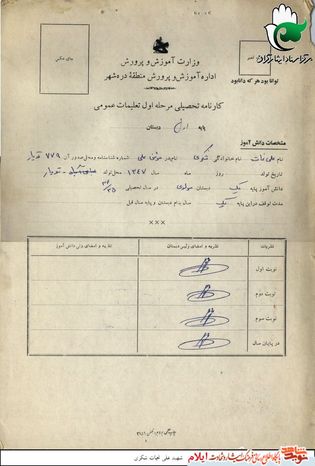 مرکز اسناد ایثارگران
جای عکس
توانا بود هر که دانا بود
وزارت آموزش و پرورش
اداره آموزش و پرورش منطقه دره‌شهر
کارنامه تحصیلی مرحله اول تعلیمات عمومی
پایه اول دبستان
مشخصات دانش آموز
نام علی نجات نام خانوادگی شکری نام پدر علی شماره شناسنامه و محل صدور آن ۷۷۹
تاریخ تولد روز ماه سال ۱۳۴۷ محل تولد
دانش آموز پایه یک دبستان مولوی در سال تحصیلی ۳۵
مدت توقف در این پایه یک سال نام دبستان و پایه سال قبل
×××
نظریات
نظریه و امضای رئیس دبستان
نظریه و امضای ولی دانش آموز
نوبت اول
نوبت دوم
نوبت سوم
در پایان سال
نوید شاهد
پایگاه اطلاع رسانی فرهنگ ایثار و شهادت ایلام
شهید علی نجات شکری